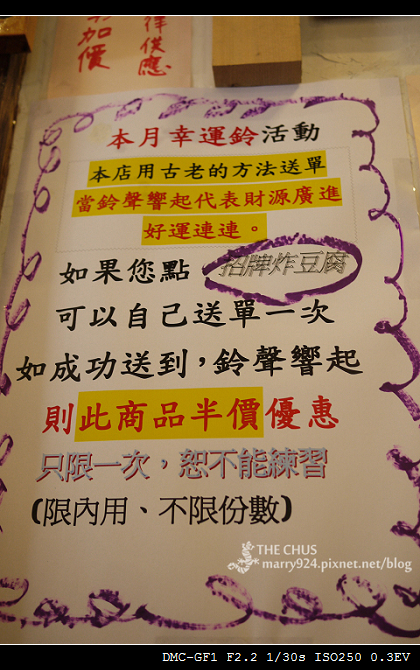 加價
祥供應
本月幸運鈴活動
本店用古老的方法送單
當鈴聲響起代表財源廣進
好運連連。
如果您點 招牌炸豆腐
可以自己送單一次
如成功送到，鈴聲響起
則此商品半價優惠
只限一次，恕不能練習
(限內用、不限份數)
THE CHUS
marry924.pixnet.net/blog
DMC-GF1 F2.2 1/30s ISO250 0.3EV